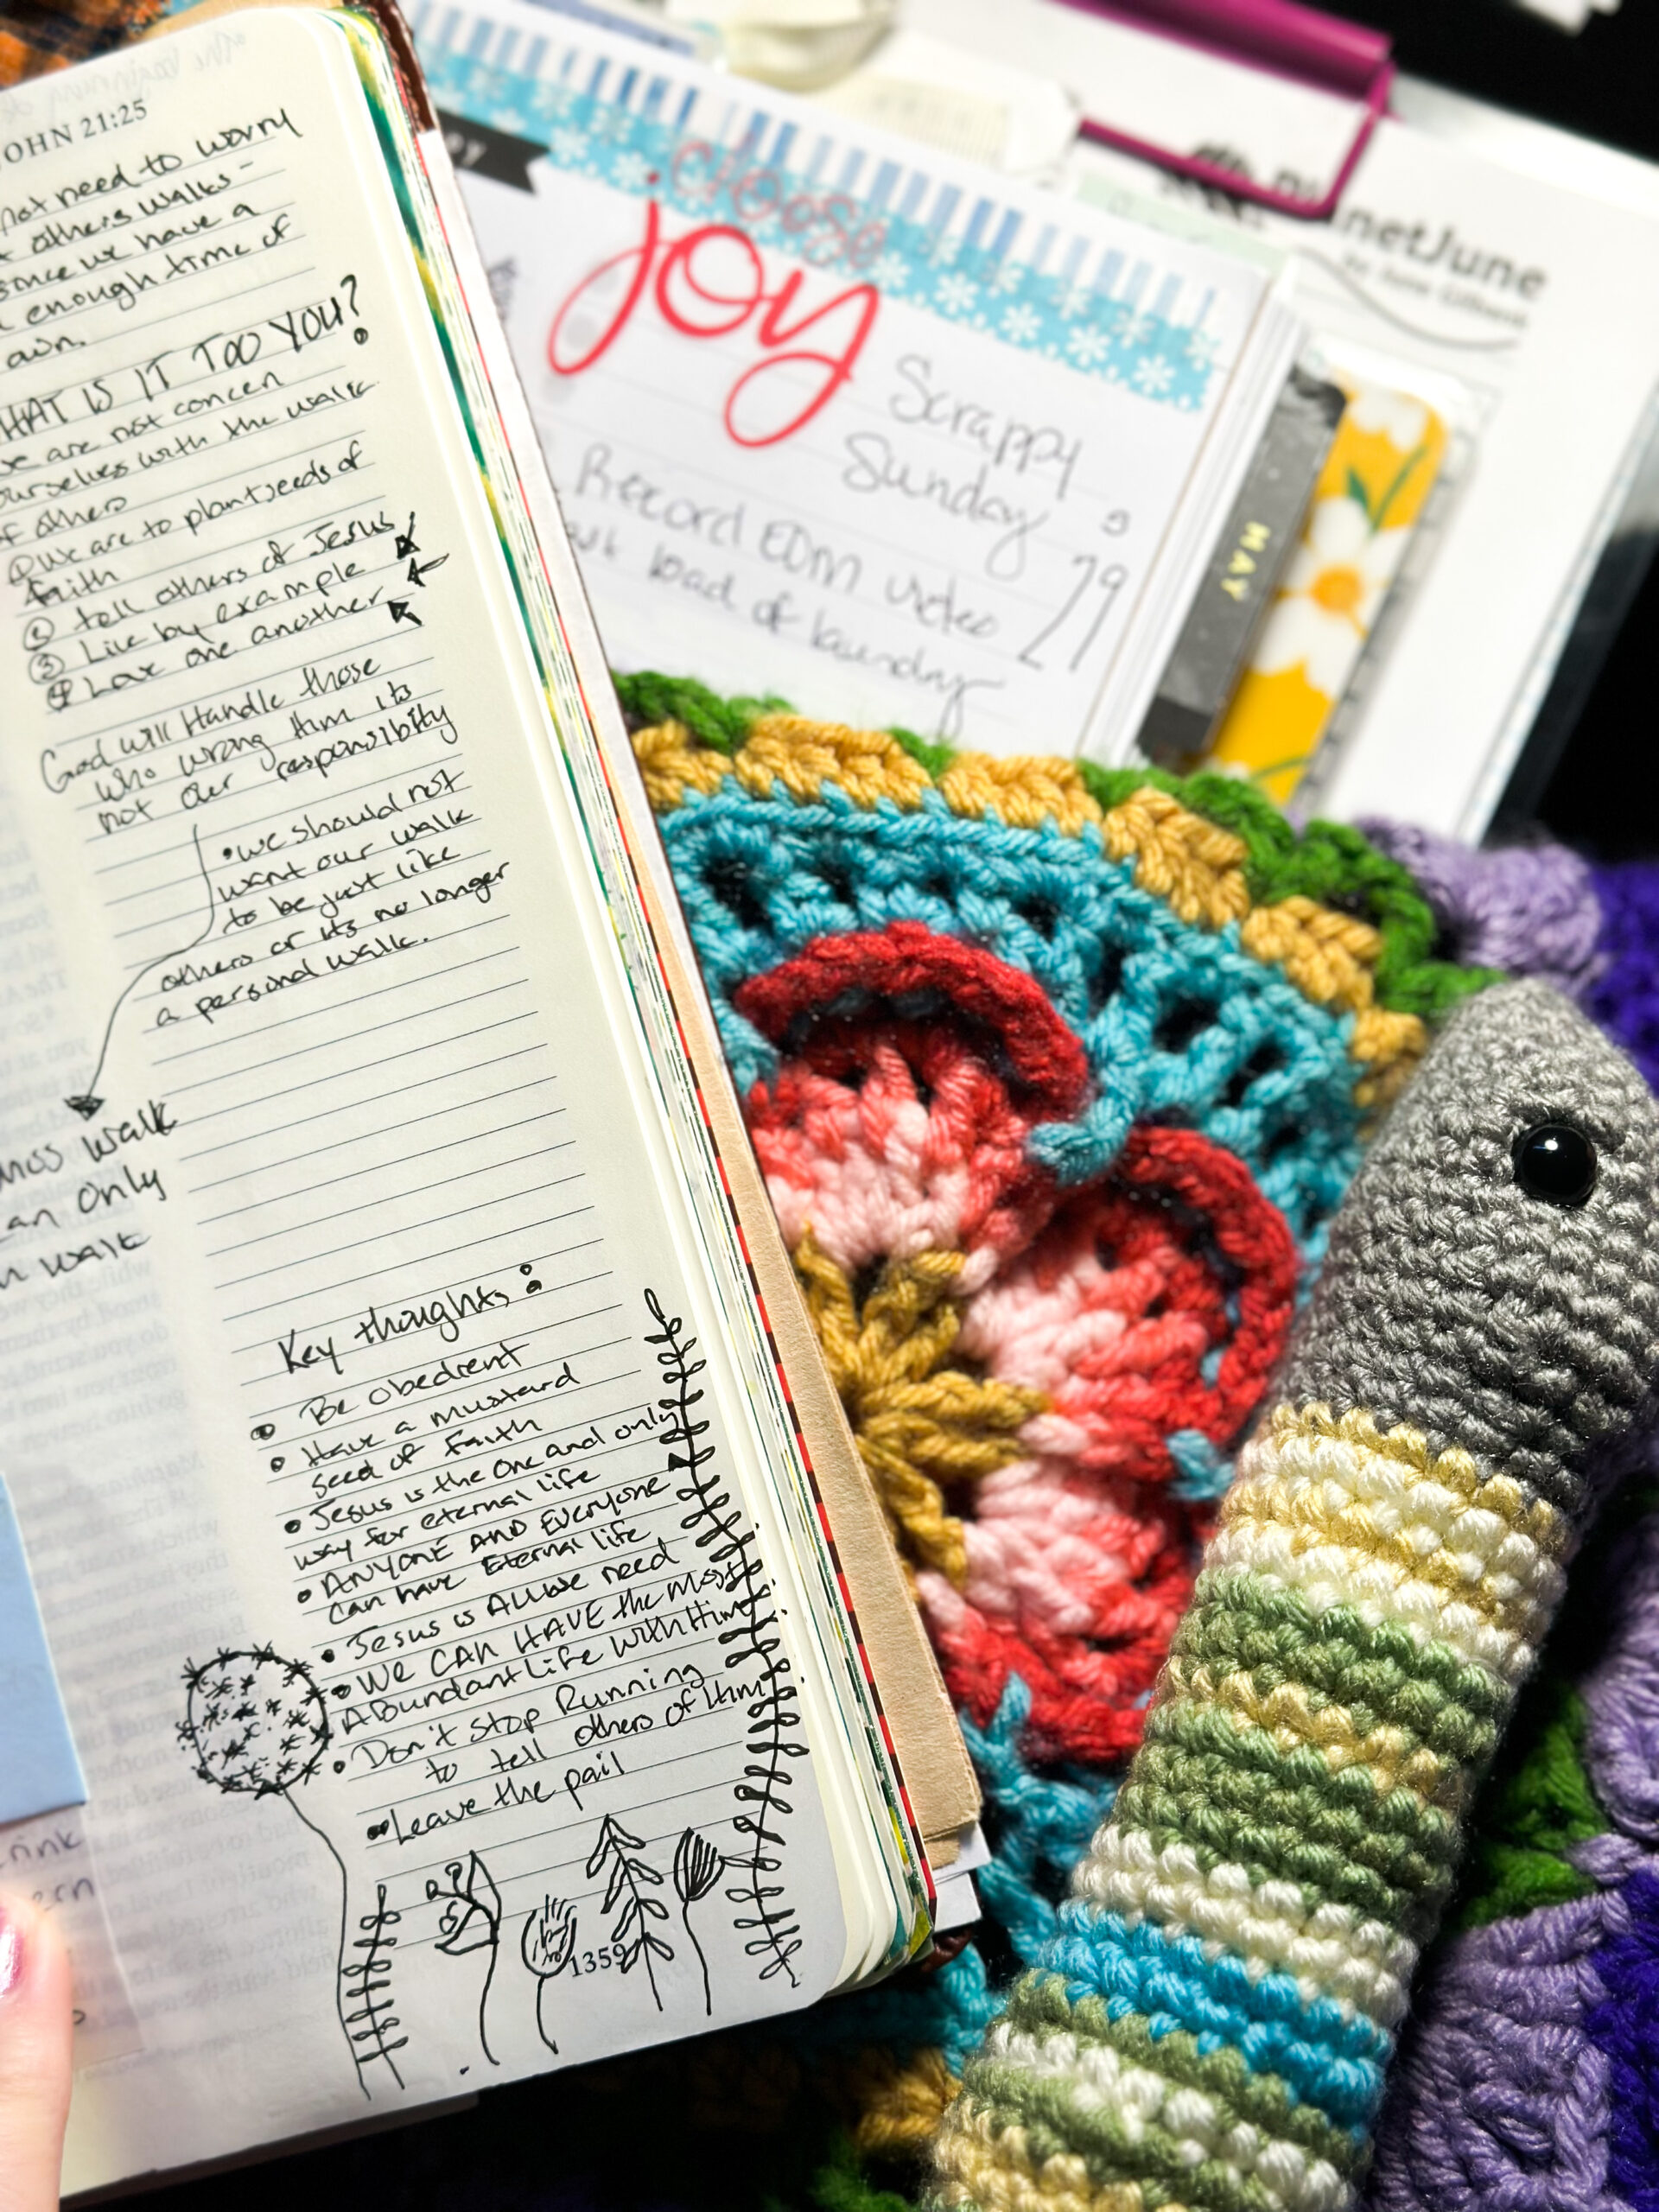 JOHN 21:25
not need to worry
others walks -
since we have a
enough time of
own.
WHAT IS IT TOO YOU?
we are not concern
ourselves with the walk
of others
① we are to plant seeds of
faith
② tell others of Jesus
③ Live by example
④ Love one another
God will Handle those
who wrong thm its
not our responsibility
• we should not
want our walk
to be just like
others or its no longer
a personal walk.
walk
an only
walk
Key thoughts:
• Be obedient
• Have a mustard
seed of faith
• Jesus is the One and only
way for eternal life
• ANYONE AND EVERYONE
can have Eternal life
• Jesus is All we need
• WE CAN HAVE the Most
Abundant Life with Him
• Don't stop Running
to tell others of Him
• Leave the pail
1359
choose
joy
Scrappy
Sunday
Record EDM video
load of laundry
29
MAY
netJune